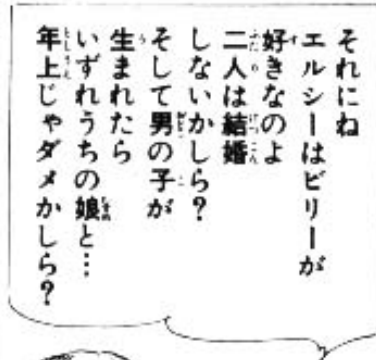 それにね
エルシーはビリーが
好きなのよ
二人は結婚
しないかしら？
そして男の子が
生まれたら
いずれうちの娘と…
年上じゃダメかしら？